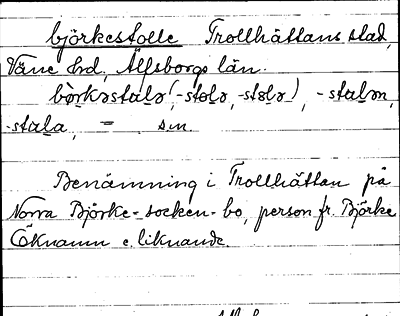 björkestolle Trollhättans stad,
Väne hrd, Älfsborgs län.
-stala, = s.m.
Benämning i Trollhättan på
Norra Björke-socken-bo, person fr. Björke
Öknamn e. liknande.